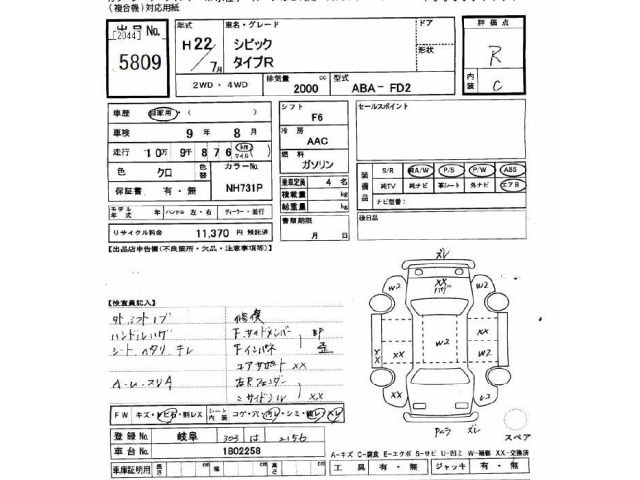 (複合機)対応用紙
出品No.
[2044]
5809
年式 車名・グレード ドア
H 22/7月 シビック タイプR 形状
評価点
R
内装 C
2WD・4WD 排気量 2000 cc 型式 ABA-FD2
車歴 自家用・( )
車検 9年 8月
走行 10万 9千 876 km マイル
色 クロ 色替 カラーNo. NH731P
保証書 有・無
シフト F6
冷房 AAC
燃料 ガソリン
乗車定員 4名
積載量 kg
総重量 kg
書類期限 月 日
セールスポイント
装備品 S/R 純A/W P/S P/W ABS
純TV 純ナビ 革シート 外ナビ エアB
ナビ型番:
後日品
モデル年式 年 ハンドル 左・右 ディーラー・並行
リサイクル料金 11,370 円 預託済
【出品店申告欄(不良箇所・欠品・注意事項等)】
【検査員記入】
外シフトノブ 修復
F.サイドメンバー
コアサポート XX
XX
FW キズ・トビ石・割レX シート内装 コゲ・穴・汚レ・シミ・破レ・スレ
登録No. 岐阜 303 は 2156
車台No. 1802258
車庫証明用 長さ cm 幅 cm 高さ cm
ズレ
XX
W2 W2
XX XX W2 W2
XX W2
ズレ
スペア
A-キズ C-腐食 E-エクボ S-サビ U-凹ミ W-補修 XX-交換済
工具 有・無 ジャッキ 有・無